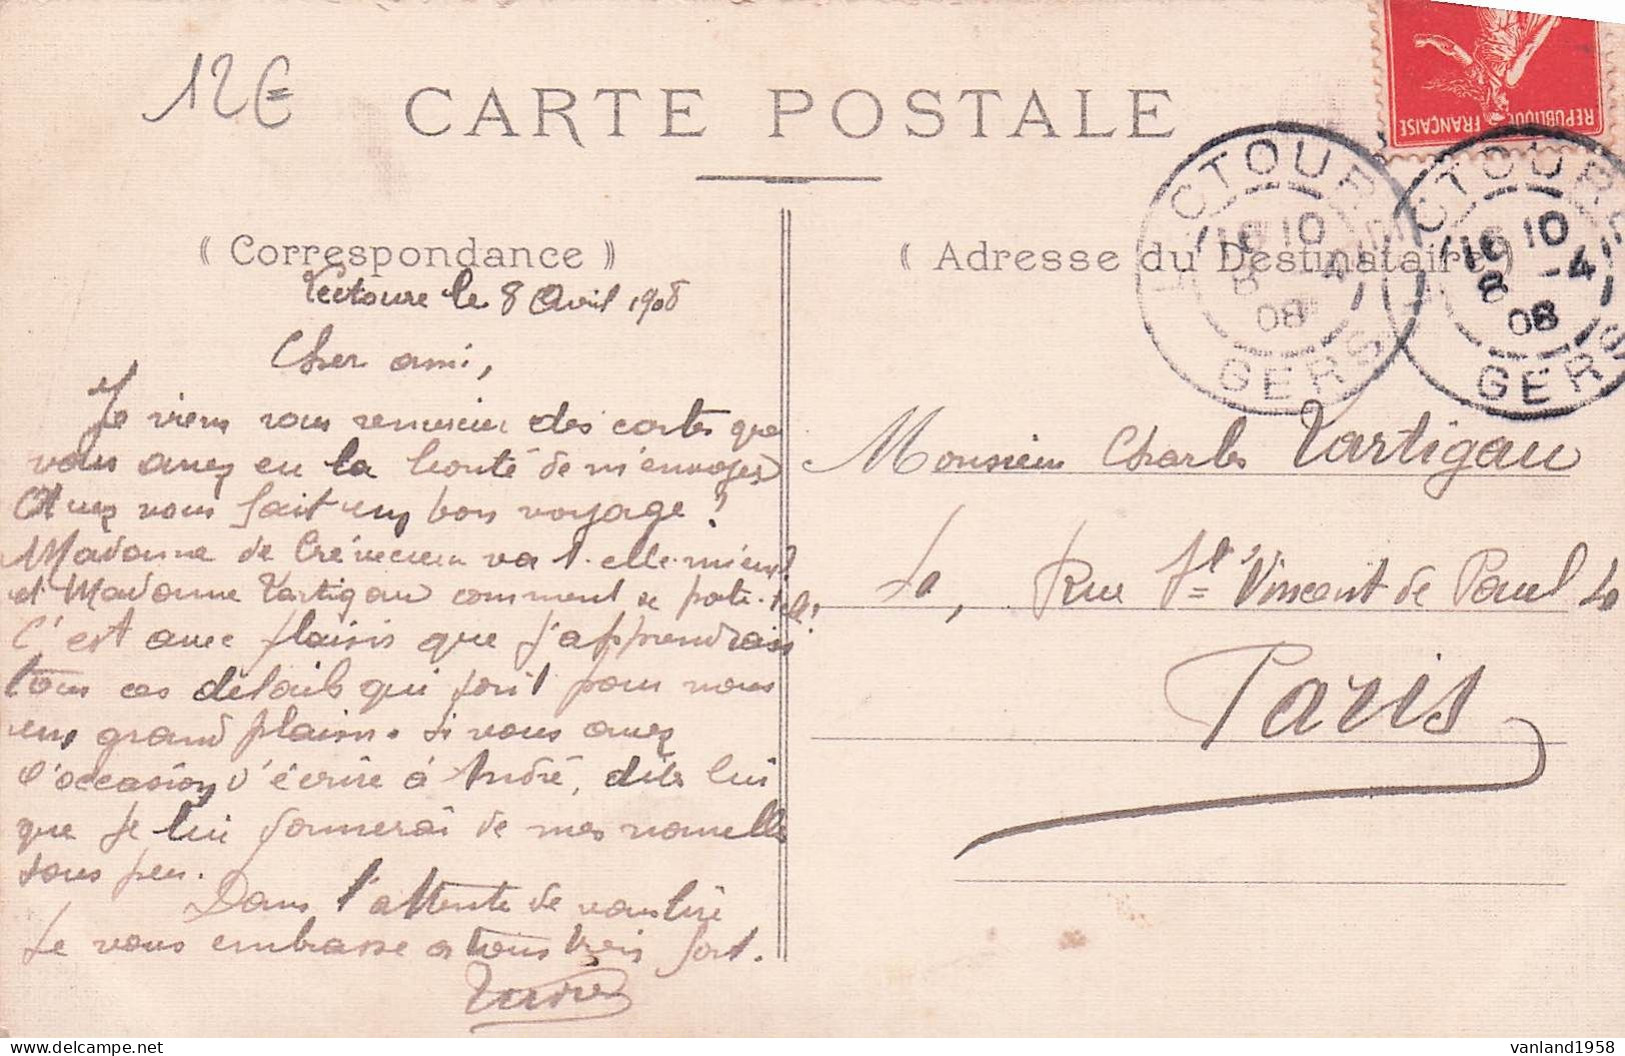 12€
CARTE POSTALE
RÉPUBLIQUE FRANÇAISE
LECTOURE
16 10
8 -4
08
GERS
LECTOURE
16 10
8 -4
08
GERS
( Correspondance )
Lectoure le 8 Avril 1908
Cher ami,
Je viens vous remercier des cartes que
vous avez eu la bonté de m'envoyer,
Avez vous fait un bon voyage ?
Madame de Crévecoeur va t-elle mieux?
et Madame Tartigau comment se porte-t-elle?
C'est avec plaisir que j'apprendrais
tous ces détails qui font pour nous
un grand plaisir. Si vous avez
l'occasion d'écrire à André, dites lui
que je lui donnerai de mes nouvelles
sous peu.
Dans l'attente de vous lire
Je vous embrasse a tous trois fort.
( Adresse du Destinataire )
Monsieur Charles Tartigau
10, Rue St Vincent de Paul 10
Paris
vanland1958